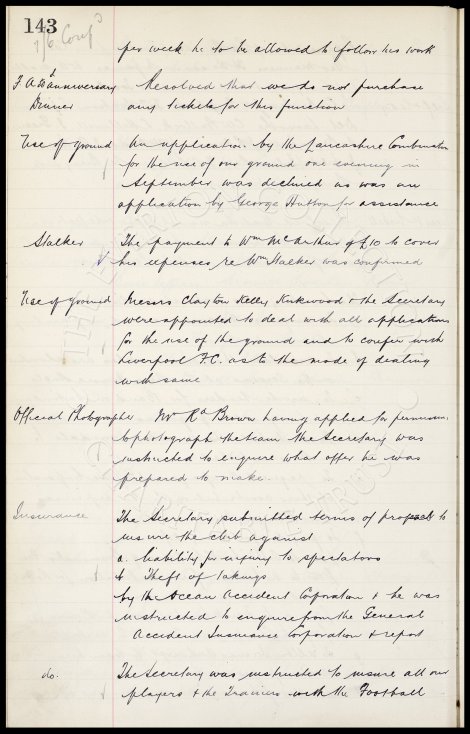 143
per week he to be allowed to follow his work
F A anniversary Dinner
Resolved that we do not purchase
any tickets for this function
Use of ground
An application by the Lancashire Combination
for the use of our ground one evening in
September was declined as was an
application by George Hutton for assistance
Stalker
The payment to Wm McArthur of £10 to cover
his expenses re Wm Stalker was confirmed
Use of ground
Messrs Clayton Kelly Kirkwood & the Secretary
were appointed to deal with all applications
for the use of the ground and to confer with
Liverpool F.C. as to the mode of dealing
with same
Official Photographer
Mr Rd Brown having applied for permission
to photograph the team the Secretary was
instructed to enquire what offer he was
prepared to make.
Insurance
The Secretary submitted terms of proposals to
insure the club against
a. liability for injury to spectators
b Theft of takings
by the Ocean Accident Corporation & he was
instructed to enquire from the General
Accident Insurance Corporation & report
do.
The Secretary was instructed to insure all our
players & the Trainers with the Football